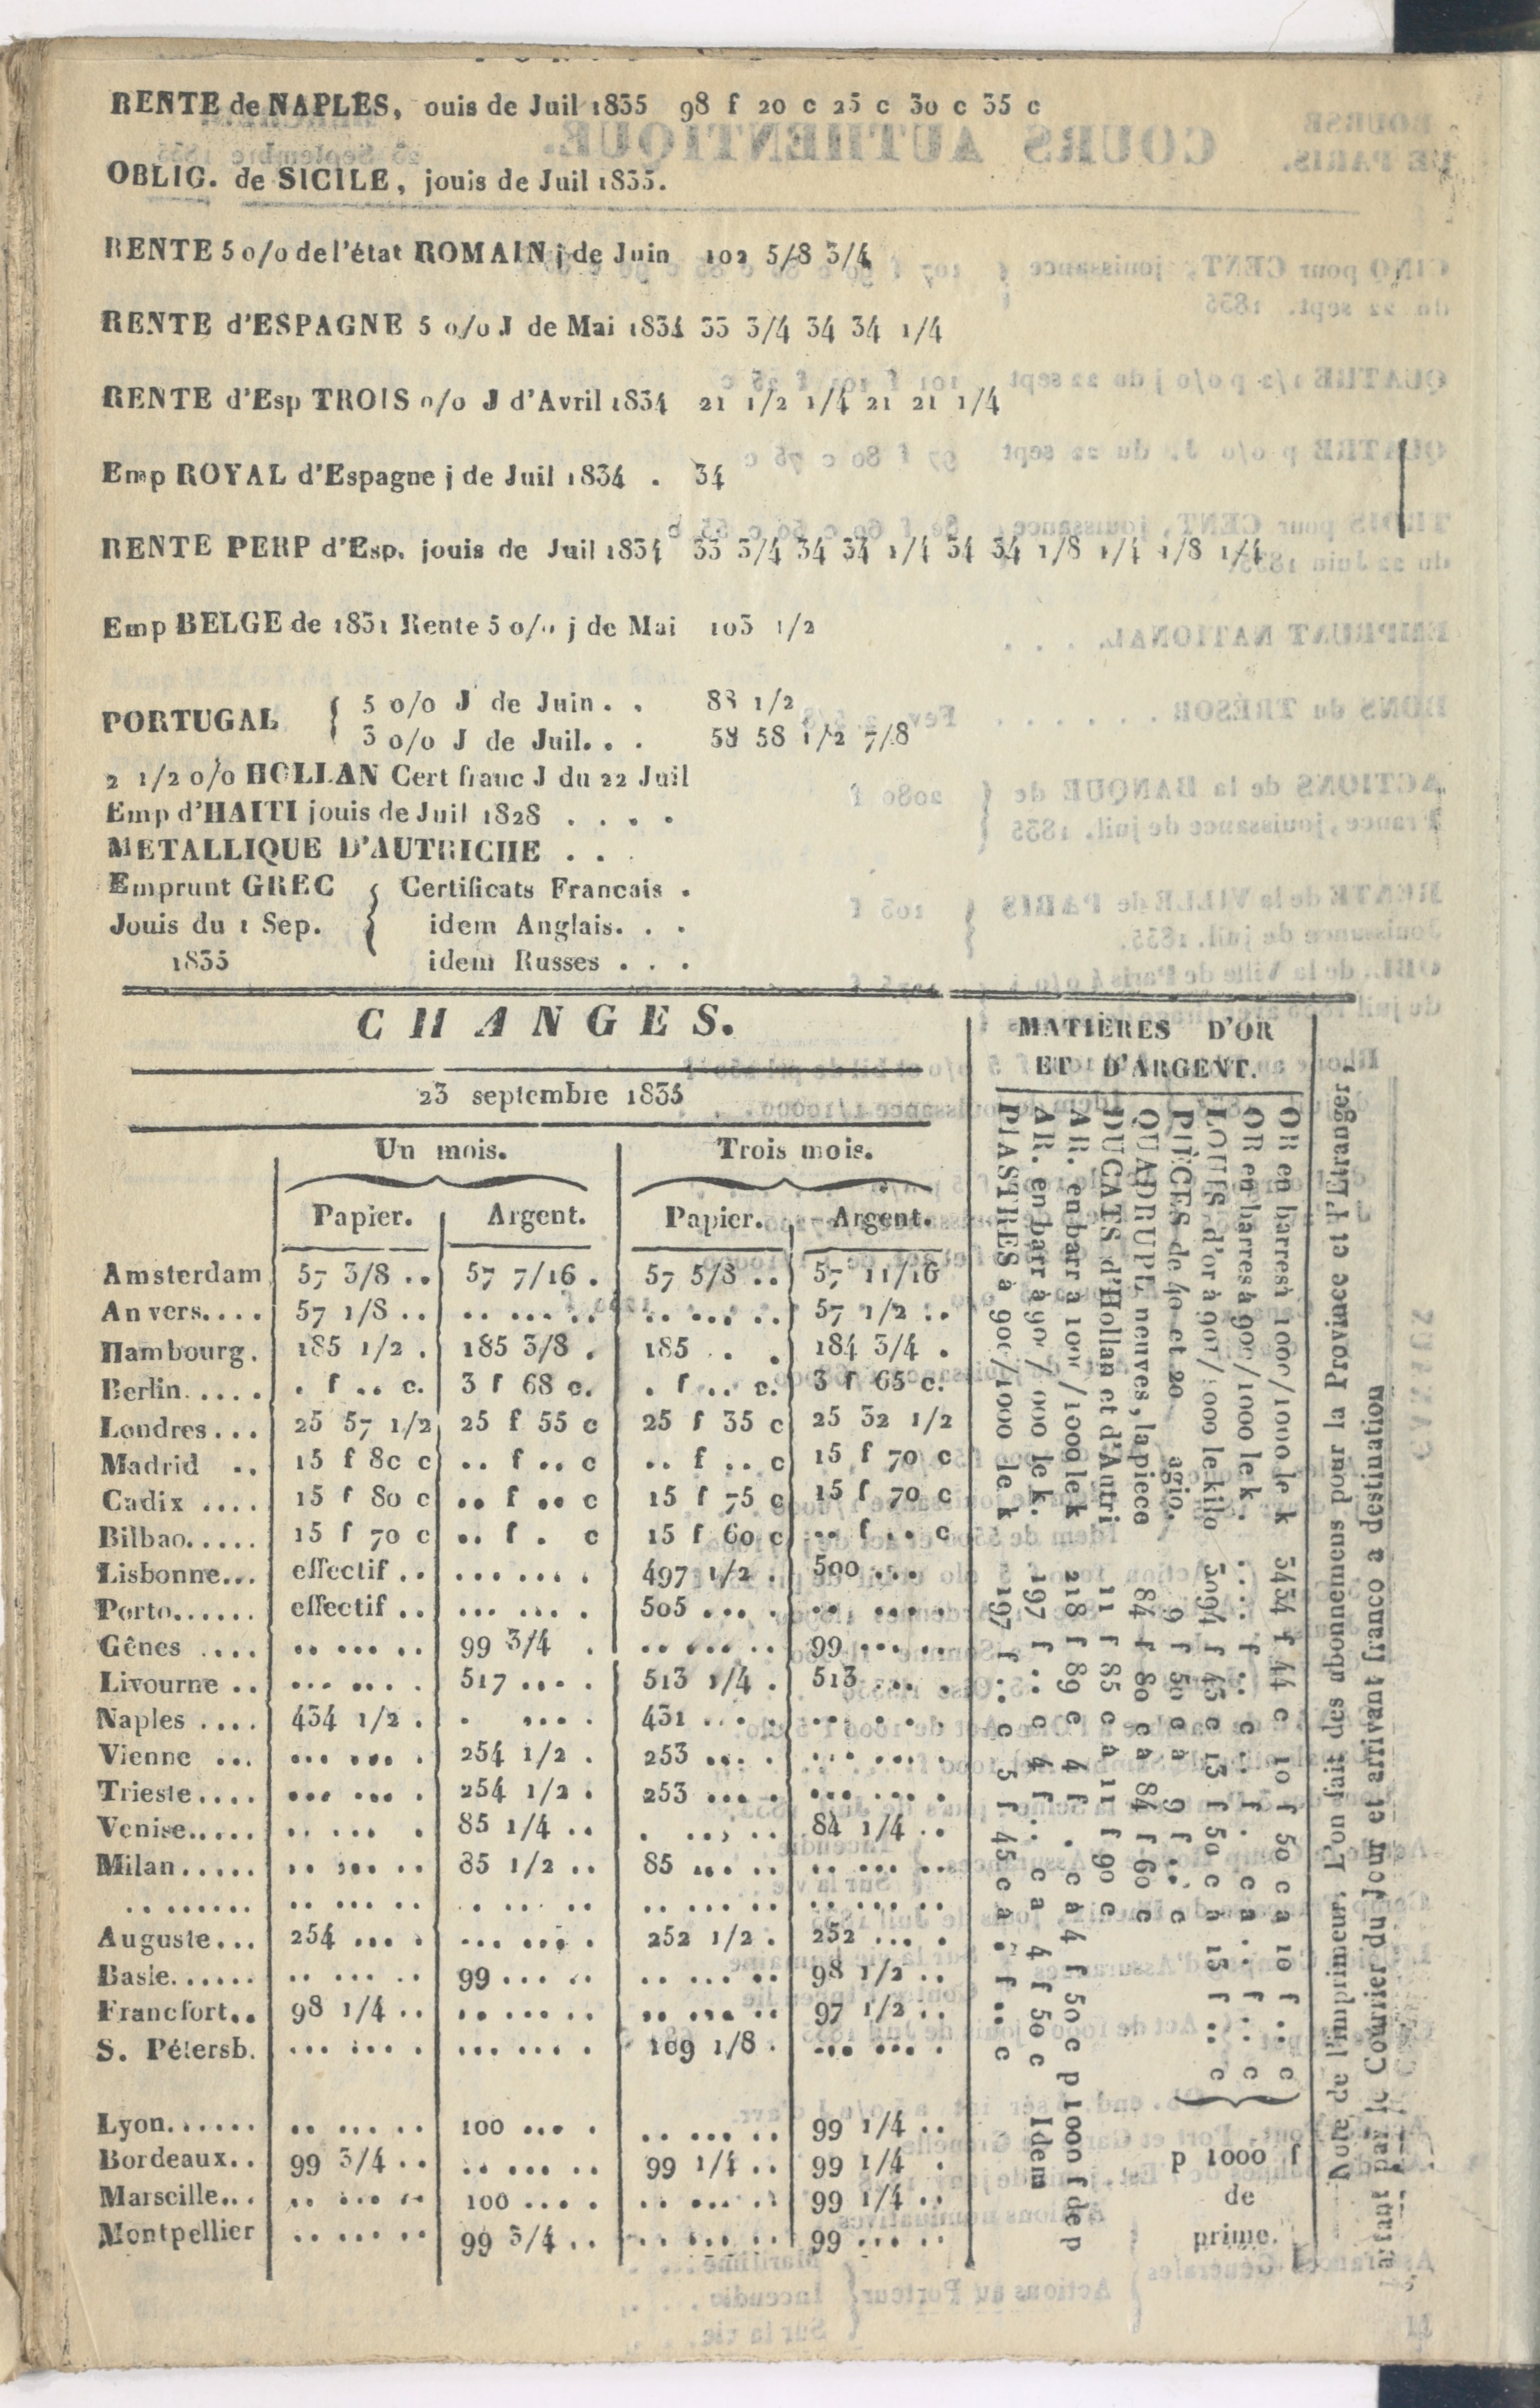 RENTE de NAPLES, ouis de Juil 1835 98 f 20 c 25 c 30 c 35 c
OBLIG. de SICILE, jouis de Juil 1835.
RENTE 5 0/0 de l'état ROMAIN j de Juin 102 5/8 3/4
RENTE d'ESPAGNE 5 0/0 J de Mai 1834 33 3/4 34 34 1/4
RENTE d'Esp TROIS 0/0 J d'Avril 1834 21 1/2 1/4 21 21 1/4
Emp ROYAL d'Espagne j de Juil 1834 . 34
RENTE PERP d'Esp. jouis de Juil 1834 33 3/4 34 34 1/4 34 34 1/8 1/4 1/8 1/4
Emp BELGE de 1831 Rente 5 0/0 j de Mai 103 1/2
PORTUGAL { 5 0/0 J de Juin . . 88 1/2
3 0/0 J de Juil. . . 58 58 1/2 7/8
2 1/2 0/0 HOLLAN Cert franc J du 22 Juil
Emp d'HAITI jouis de Juil 1828 . . . .
METALLIQUE D'AUTRICHE . . .
Emprunt GREC { Certificats Francais .
Jouis du 1 Sep. idem Anglais. . .
1835 idem Russes . . .
CHANGES.
23 septembre 1835
Un mois. Trois mois.
Papier. Argent. Papier. Argent.
Amsterdam 57 3/8 .. 57 7/16 . 57 5/8 .. 57 11/16
Anvers.... 57 1/8 .. .. ... .. .. ... .. 57 1/2 ..
Hambourg. 185 1/2 . 185 3/8 . 185 . . . 184 3/4 .
Berlin..... . f .. c. 3 f 68 c. . f .. c. 3 f 65 c.
Londres... 25 57 1/2 25 f 55 c 25 f 35 c 25 32 1/2
Madrid .. 15 f 80 c .. f .. c .. f .. c 15 f 70 c
Cadix .... 15 f 80 c .. f .. c 15 f 75 c 15 f 70 c
Bilbao..... 15 f 70 c .. f . c 15 f 60 c .. f .. c
Lisbonne... effectif .. ... ... . 497 1/2 . 500 ... .
Porto...... effectif .. ... ... . 505 ... . .. ... .
Gênes .... .. ... .. 99 3/4 . .. ... .. 99 ... ..
Livourne .. ... ... . 517 ... . 513 1/4 . 513 ... .
Naples .... 434 1/2 . . ... . 431 ... . ... ... .
Vienne ... ... ... . 254 1/2 . 253 ... . ... ... .
Trieste.... ... ... . 254 1/2 . 253 ... . ... ... .
Venise..... .. ... . 85 1/4 .. . ... .. 84 1/4 ..
Milan..... .. ... .. 85 1/2 .. 85 ... .. .. ... ..
.. ...... .. ... .. . ... .. .. ... .. .. ... ..
Auguste... 254 ... . ... ... . 252 1/2 . 252 ... .
Basle...... .. ... .. 99 ... .. .. ... .. 98 1/2 ..
Francfort.. 98 1/4 .. .. ... .. .. ... .. 97 1/2 ..
S. Pétersb. ... ... . ... ... . 109 1/8 . ... ... .
Lyon...... .. ... .. 100 ... . .. ... .. 99 1/4 ..
Bordeaux.. 99 3/4 .. .. ... .. 99 1/4 .. 99 1/4 .
Marseille... .. ... .. 100 ... . .. ... .. 99 1/4 ..
Montpellier .. ... .. 99 3/4 .. .. ... .. 99 ... ..
MATIÈRES D'OR
ET D'ARGENT.
OR en barres à 1000/1000 le k 3434 f 44 c 10 f 50 c a 10 f .. c
OR en barres à 900/1000 le k. .... f .. c .. f . c a .. f .. c
LOUIS d'or à 901/1000 le kilo 3094 f 45 c 13 f 50 c à 15 f .. c
PIÈCES de 40 et 20 agio. 9 f 50 c à 9 f .. c
QUADRUPL neuves, la piece 84 f 80 c a 84 f 60 c
DUCATS d'Hollan et d'Autri 11 f 85 c a 11 f 90 c
AR. en barr à 1000/1000 le k 218 f 89 c 4 f . c a 4 f 50 c p 1000 f de p
AR. en barr à 900/1000 le k. 197 f .. c 4 f .. c a 4 f 50 c Idem
PIASTRES à 900/1000 le k 197 f .. c 5 f 45 c a . f .. c
p 1000 f
de
prime.
Note de l'imprimeur. L'on fait des abonnemens pour la Province et l'Etranger,
partant par le Courrier du Jour et arrivant franco a destination